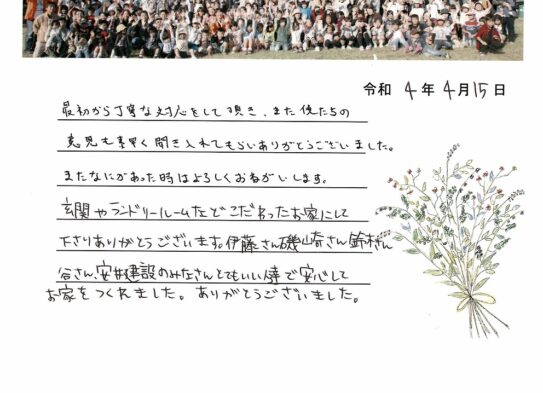 令和 4年 4月15日
最初から丁寧な対応をして頂き、また僕たちの
意見も素早く聞き入れてもらいありがとうございました。
またなにかあった時はよろしくおねがいします。
玄関やランドリールームなどこだわったお家にして
下さりありがとうございます。伊藤さん磯崎さん鈴木さん
谷さん、安井建設のみなさんとてもいい人達で安心して
お家をつくれました。ありがとうございました。